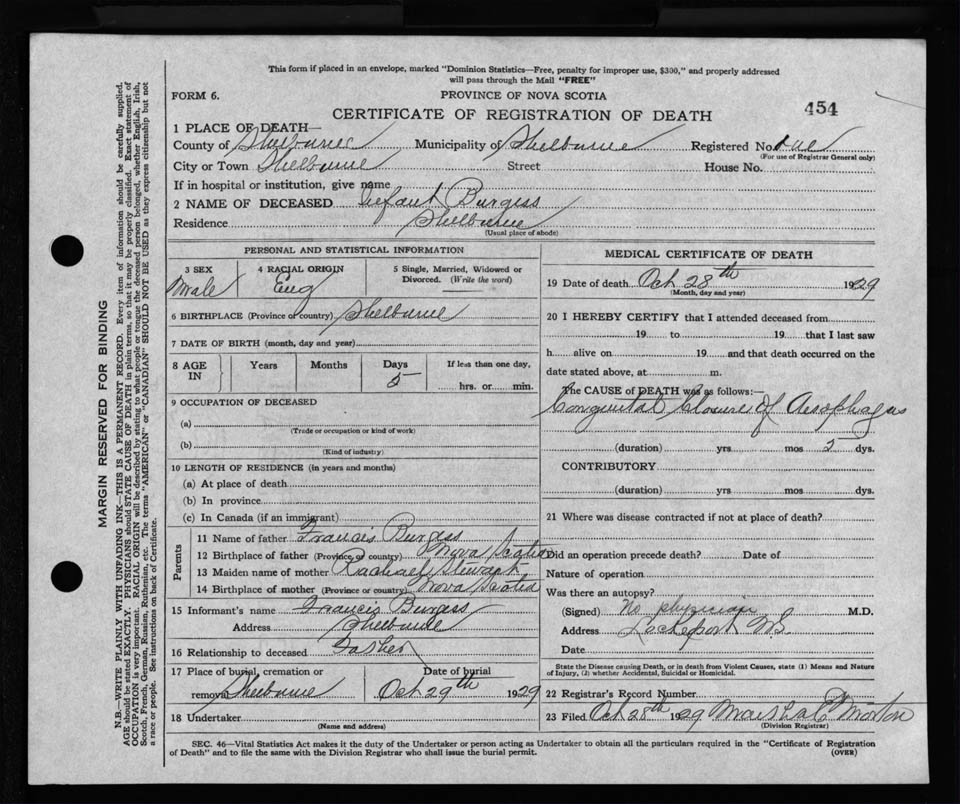 This form if placed in an envelope, marked "Dominion Statistics—Free, penalty for improper use, $300," and properly addressed
will pass through the Mail "FREE"
FORM 6.
PROVINCE OF NOVA SCOTIA
CERTIFICATE OF REGISTRATION OF DEATH
454
1 PLACE OF DEATH—
County of Shelburne Municipality of Shelburne Registered No.
(For use of Registrar General only)
City or Town Shelburne Street House No.
If in hospital or institution, give name
2 NAME OF DECEASED Infant Burgess
Residence Shelburne
(Usual place of abode)
PERSONAL AND STATISTICAL INFORMATION
3 SEX
Male
4 RACIAL ORIGIN
Eng
5 Single, Married, Widowed or
Divorced. (Write the word)
6 BIRTHPLACE (Province or country) Shelburne
7 DATE OF BIRTH (month, day and year)
8 AGE
IN
Years
Months
Days
5
If less than one day,
hrs. or min.
9 OCCUPATION OF DECEASED
(a)
(Trade or occupation or kind of work)
(b)
(Kind of industry)
10 LENGTH OF RESIDENCE (in years and months)
(a) At place of death
(b) In province
(c) In Canada (if an immigrant)
Parents
11 Name of father Francis Burgess
12 Birthplace of father (Province or country) Nova Scotia
13 Maiden name of mother Rachael Stewart
14 Birthplace of mother (Province or country) Nova Scotia
15 Informant's name Francis Burgess
Address Shelburne
16 Relationship to deceased Father
17 Place of burial, cremation or Date of burial
removal Shelburne Oct 29th 1929
18 Undertaker
(Name and address)
MEDICAL CERTIFICATE OF DEATH
19 Date of death Oct 28th 1929
(Month, day and year)
20 I HEREBY CERTIFY that I attended deceased from
19 to 19 that I last saw
h alive on 19 and that death occurred on the
date stated above, at m.
The CAUSE of DEATH was as follows:—
Congenital Closure of Aesophagus
(duration) yrs mos 5 dys.
CONTRIBUTORY
(duration) yrs mos dys.
21 Where was disease contracted if not at place of death?
Did an operation precede death? Date of
Nature of operation
Was there an autopsy?
(Signed) No physician M.D.
Address Lockeport NS
Date
State the Disease causing Death, or in death from Violent Causes, state (1) Means and Nature
of Injury, (2) whether Accidental, Suicidal or Homicidal.
22 Registrar's Record Number
23 Filed Oct 28th 1929 Morton
(Division Registrar)
SEC. 46—Vital Statistics Act makes it the duty of the Undertaker or person acting as Undertaker to obtain all the particulars required in the "Certificate of Registration
of Death" and to file the same with the Division Registrar who shall issue the burial permit.
(OVER)
MARGIN RESERVED FOR BINDING
N.B.—WRITE PLAINLY WITH UNFADING INK—THIS IS A PERMANENT RECORD. Every item of information should be carefully supplied.
AGE should be stated EXACTLY. PHYSICIANS should STATE CAUSE OF DEATH in plain terms, so that it may be properly classified. Exact statement of
OCCUPATION is very important. RACIAL ORIGIN will be described by stating to what people or tongue the deceased person belonged, whether English, Irish,
Scotch, French, German, Russian, Ruthenian, etc. The terms "AMERICAN" or "CANADIAN" SHOULD NOT BE USED as they express citizenship but not
a race or people. See instructions on back of Certificate.